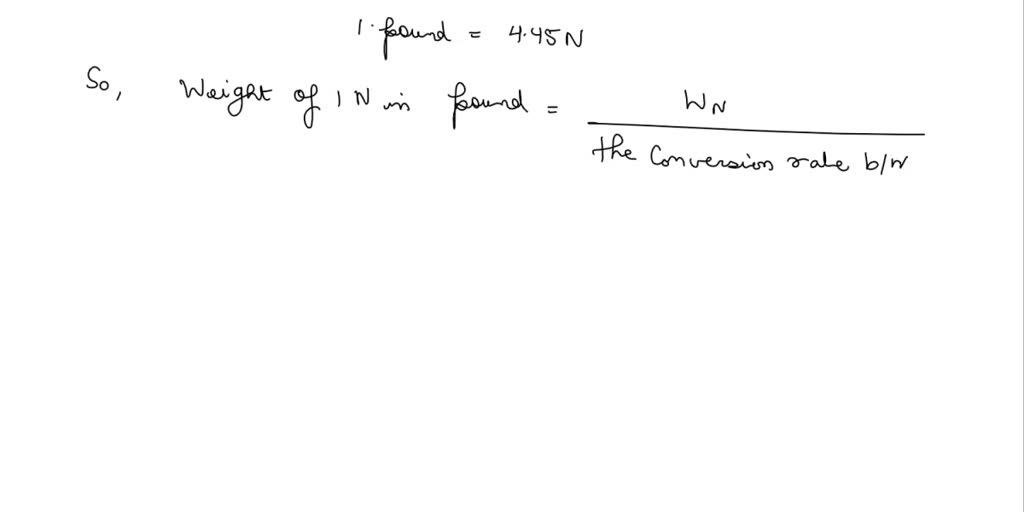 1 pound = 4.45 N
So, Weight of 1 N in pound = W_N
the Conversion rate b/w